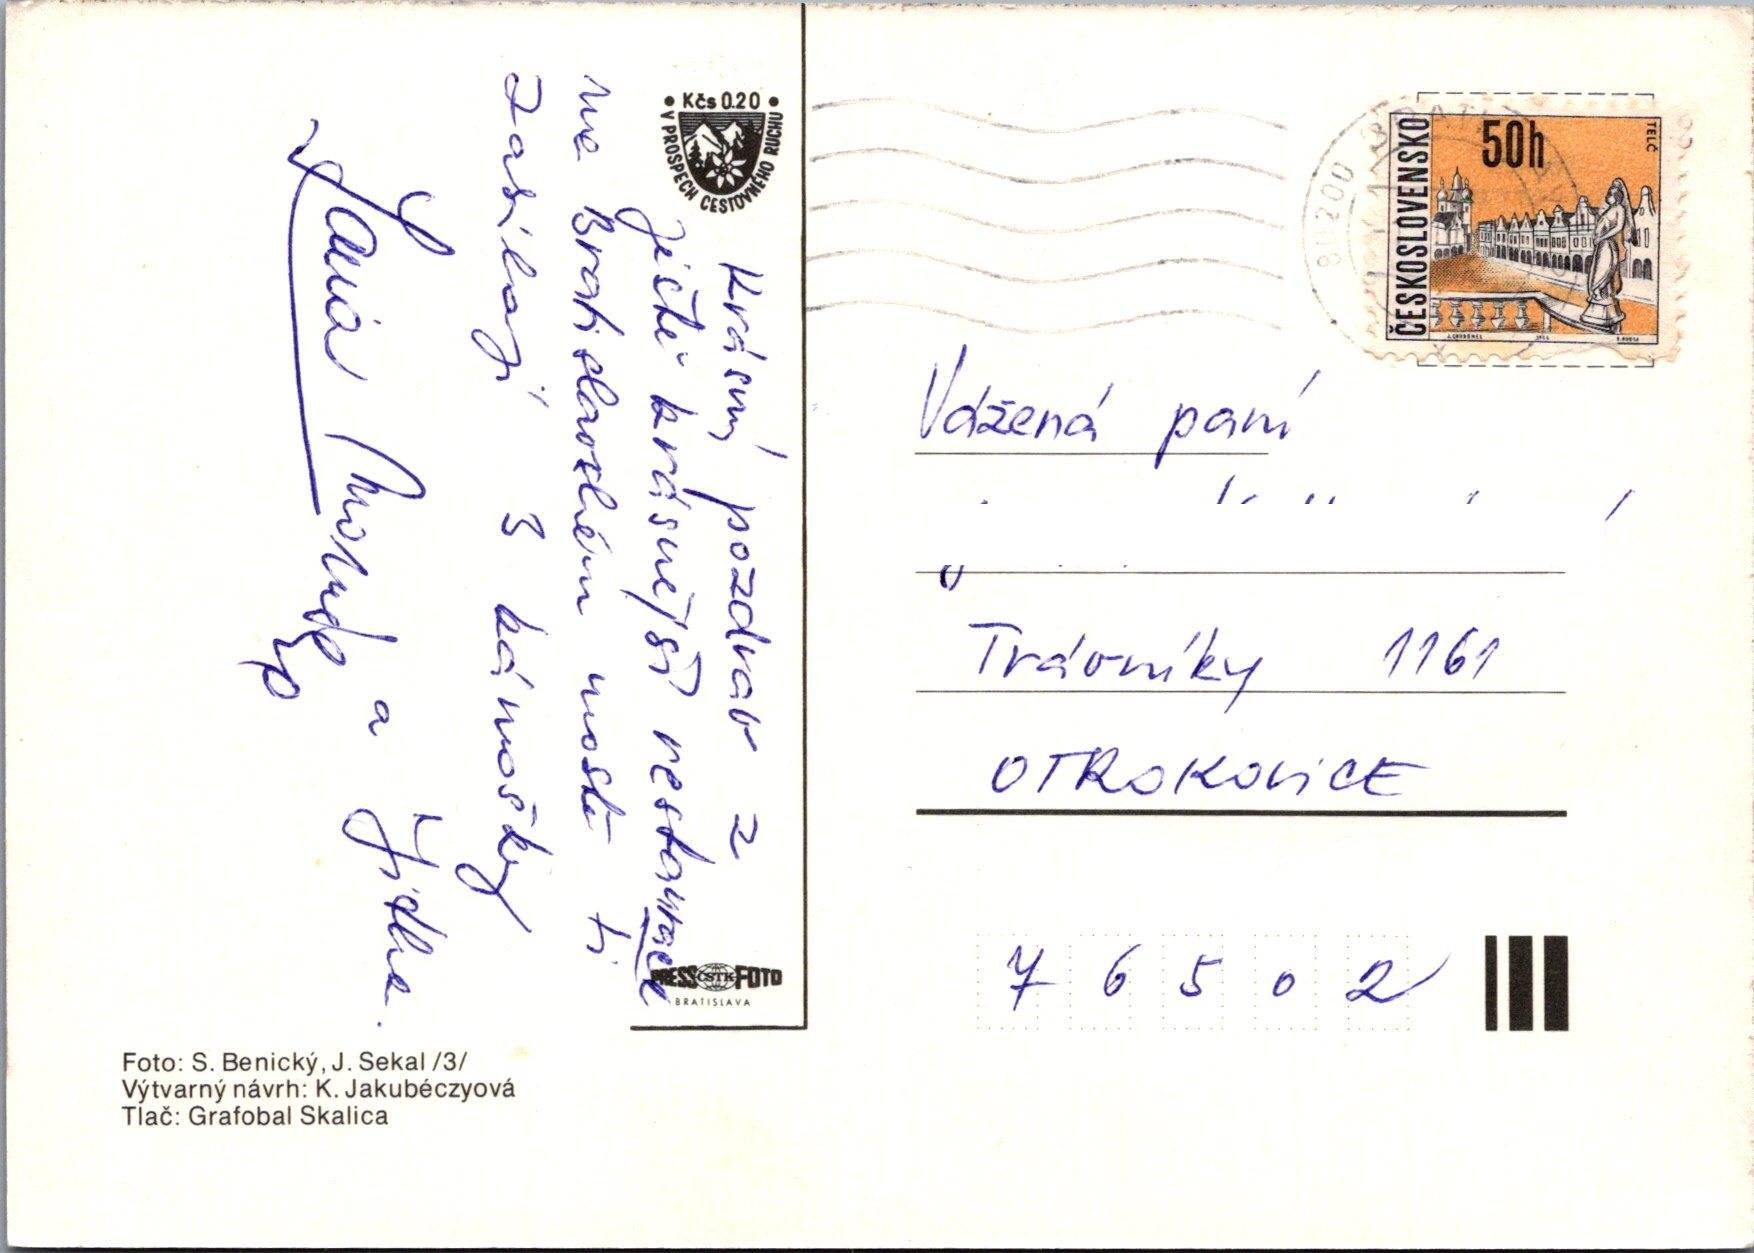 Kčs 0.20
V PROSPECH CESTOVNÉHO RUCHU
Krásný pozdrav z
ještě krásnější restaurace
na Bratislavském mostě ti
zasílají 3 kámošky
Jaňa a Jitka.
PRESS ČSTK FOTO
BRATISLAVA
Foto: S. Benický, J. Sekal /3/
Výtvarný návrh: K. Jakubéczyová
Tlač: Grafobal Skalica
ČESKOSLOVENSKO
50h
TELČ
80200
Vážená paní
Trávníky 1161
OTROKOVICE
76502